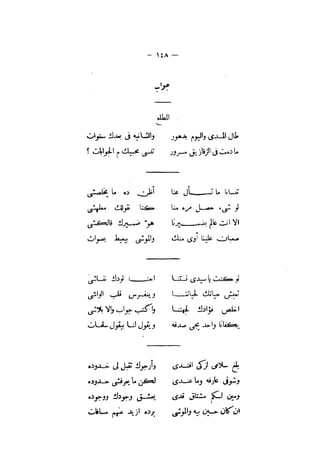 — ١٤٨ —
جواب
المطلع
طال المدى واليوم بدهور والثانيه فى بعدك سنوات
ما دمت فى الزقازيق مسرور تنسى محبيك م الجوابات ؟
تنسانا ما تسأل عنا أظن ده ما يخلصشى
لو شىء حصل مره منا كنا نقولك معلهشى
الا انت عالم بضميرنا هو ضميرك
صعبان علينا أوى منك والموشى بعيط بصوات
لو كنت يا سيدى قتنا احنا لودك
تعيش حياتك لحياتنا وينغرس قلب الواشى
اخلص فؤادك لجهتنا واكتب جواب والا بلاشى
يكفانا واحد يجى صدفه ويقول لنا بيقول سلامات
بلغ سلامى لزكى افندى وأرجوك تقبل لى خدوده
وشوقى عارفه وما عندى لكن ما يعرفشى حدوده
ومين لكم مشتاق قدى يعشق وجودك ووجوده
ان كان حسين بيه والموشى برده ازيد عنهم مسافات